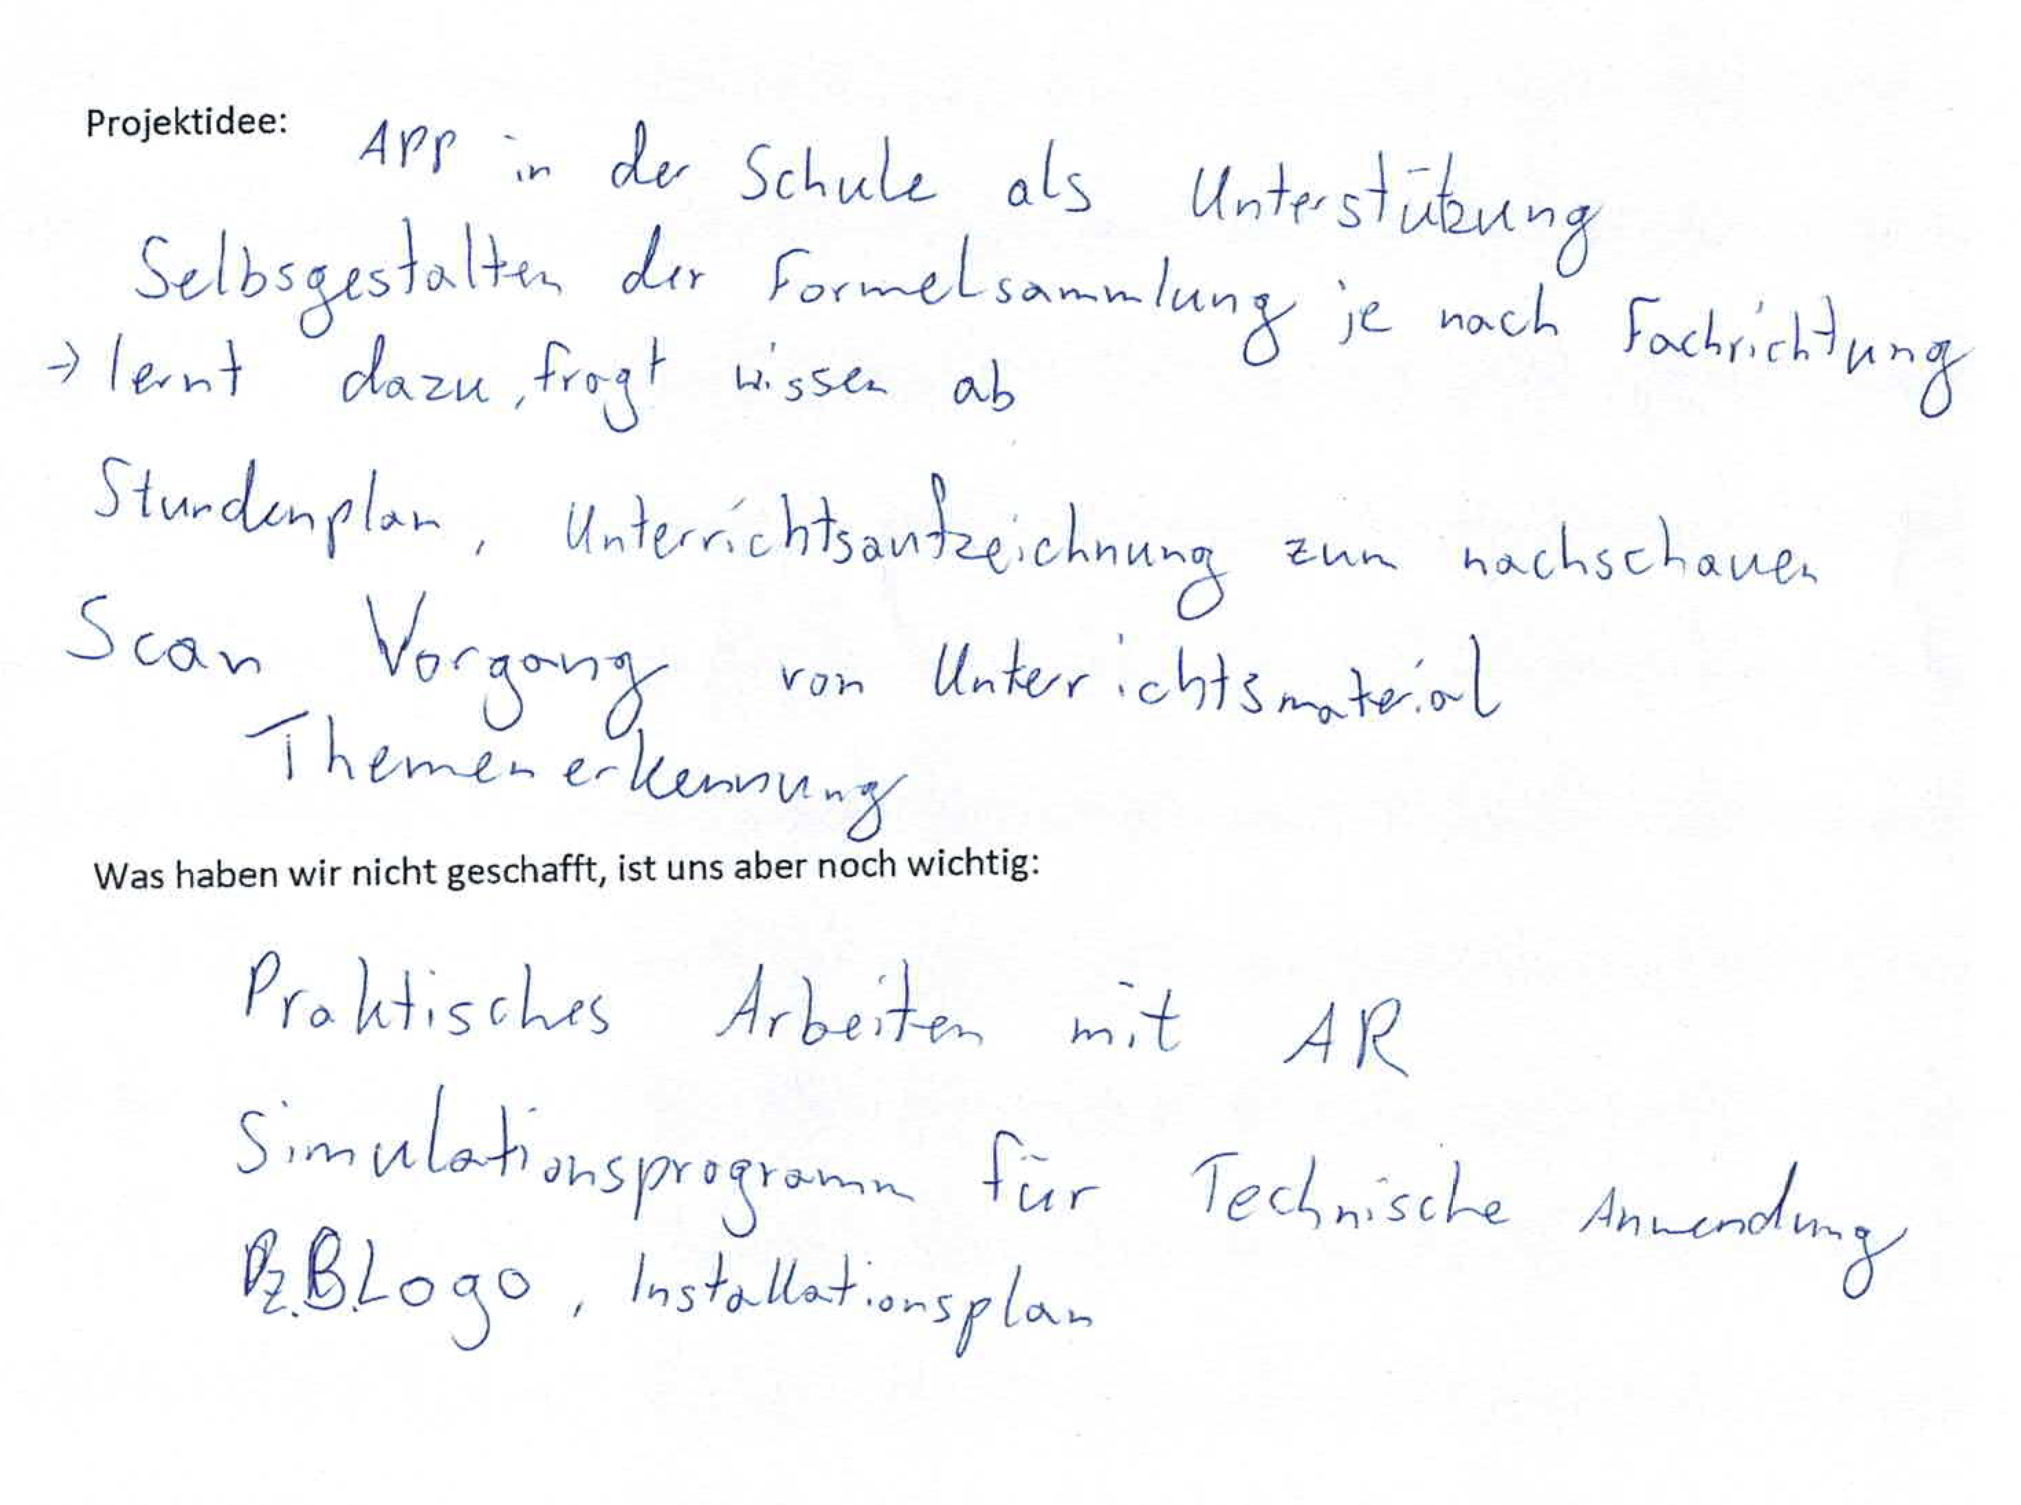 Projektidee: APP in der Schule als Unterstützung
Selbsgestalten der Formelsammlung je nach Fachrichtung
→ lernt dazu, fragt wissen ab
Stundenplan, Unterrichtsaufzeichnung zum nachschauen
Scan Vorgang von Unterrichtsmaterial
Themenerkennung
Was haben wir nicht geschafft, ist uns aber noch wichtig:
Praktisches Arbeiten mit AR
Simulationsprogramm für Technische Anwendung
z.B. Logo, Installationsplan